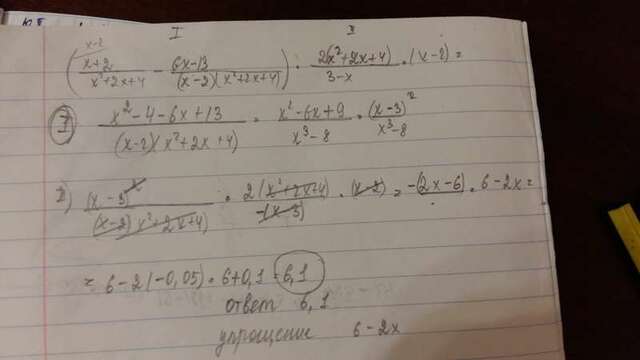 I II
x-2
( x+2 / x²+2x+4 - 6x-13 / (x-2)(x²+2x+4) ) · 2(x²+2x+4) / 3-x · (x-2) =
I) x²-4-6x+13 / (x-2)(x²+2x+4) = x²-6x+9 / x³-8 = (x-3)² / x³-8
2) (x-3)² / (x-2)(x²+2x+4) · 2(x²+2x+4) / -(x-3) · (x-2) = -(2x-6) = 6-2x =
= 6-2(-0,05) = 6+0,1 = 6,1
ответ 6,1
упрощение 6-2x